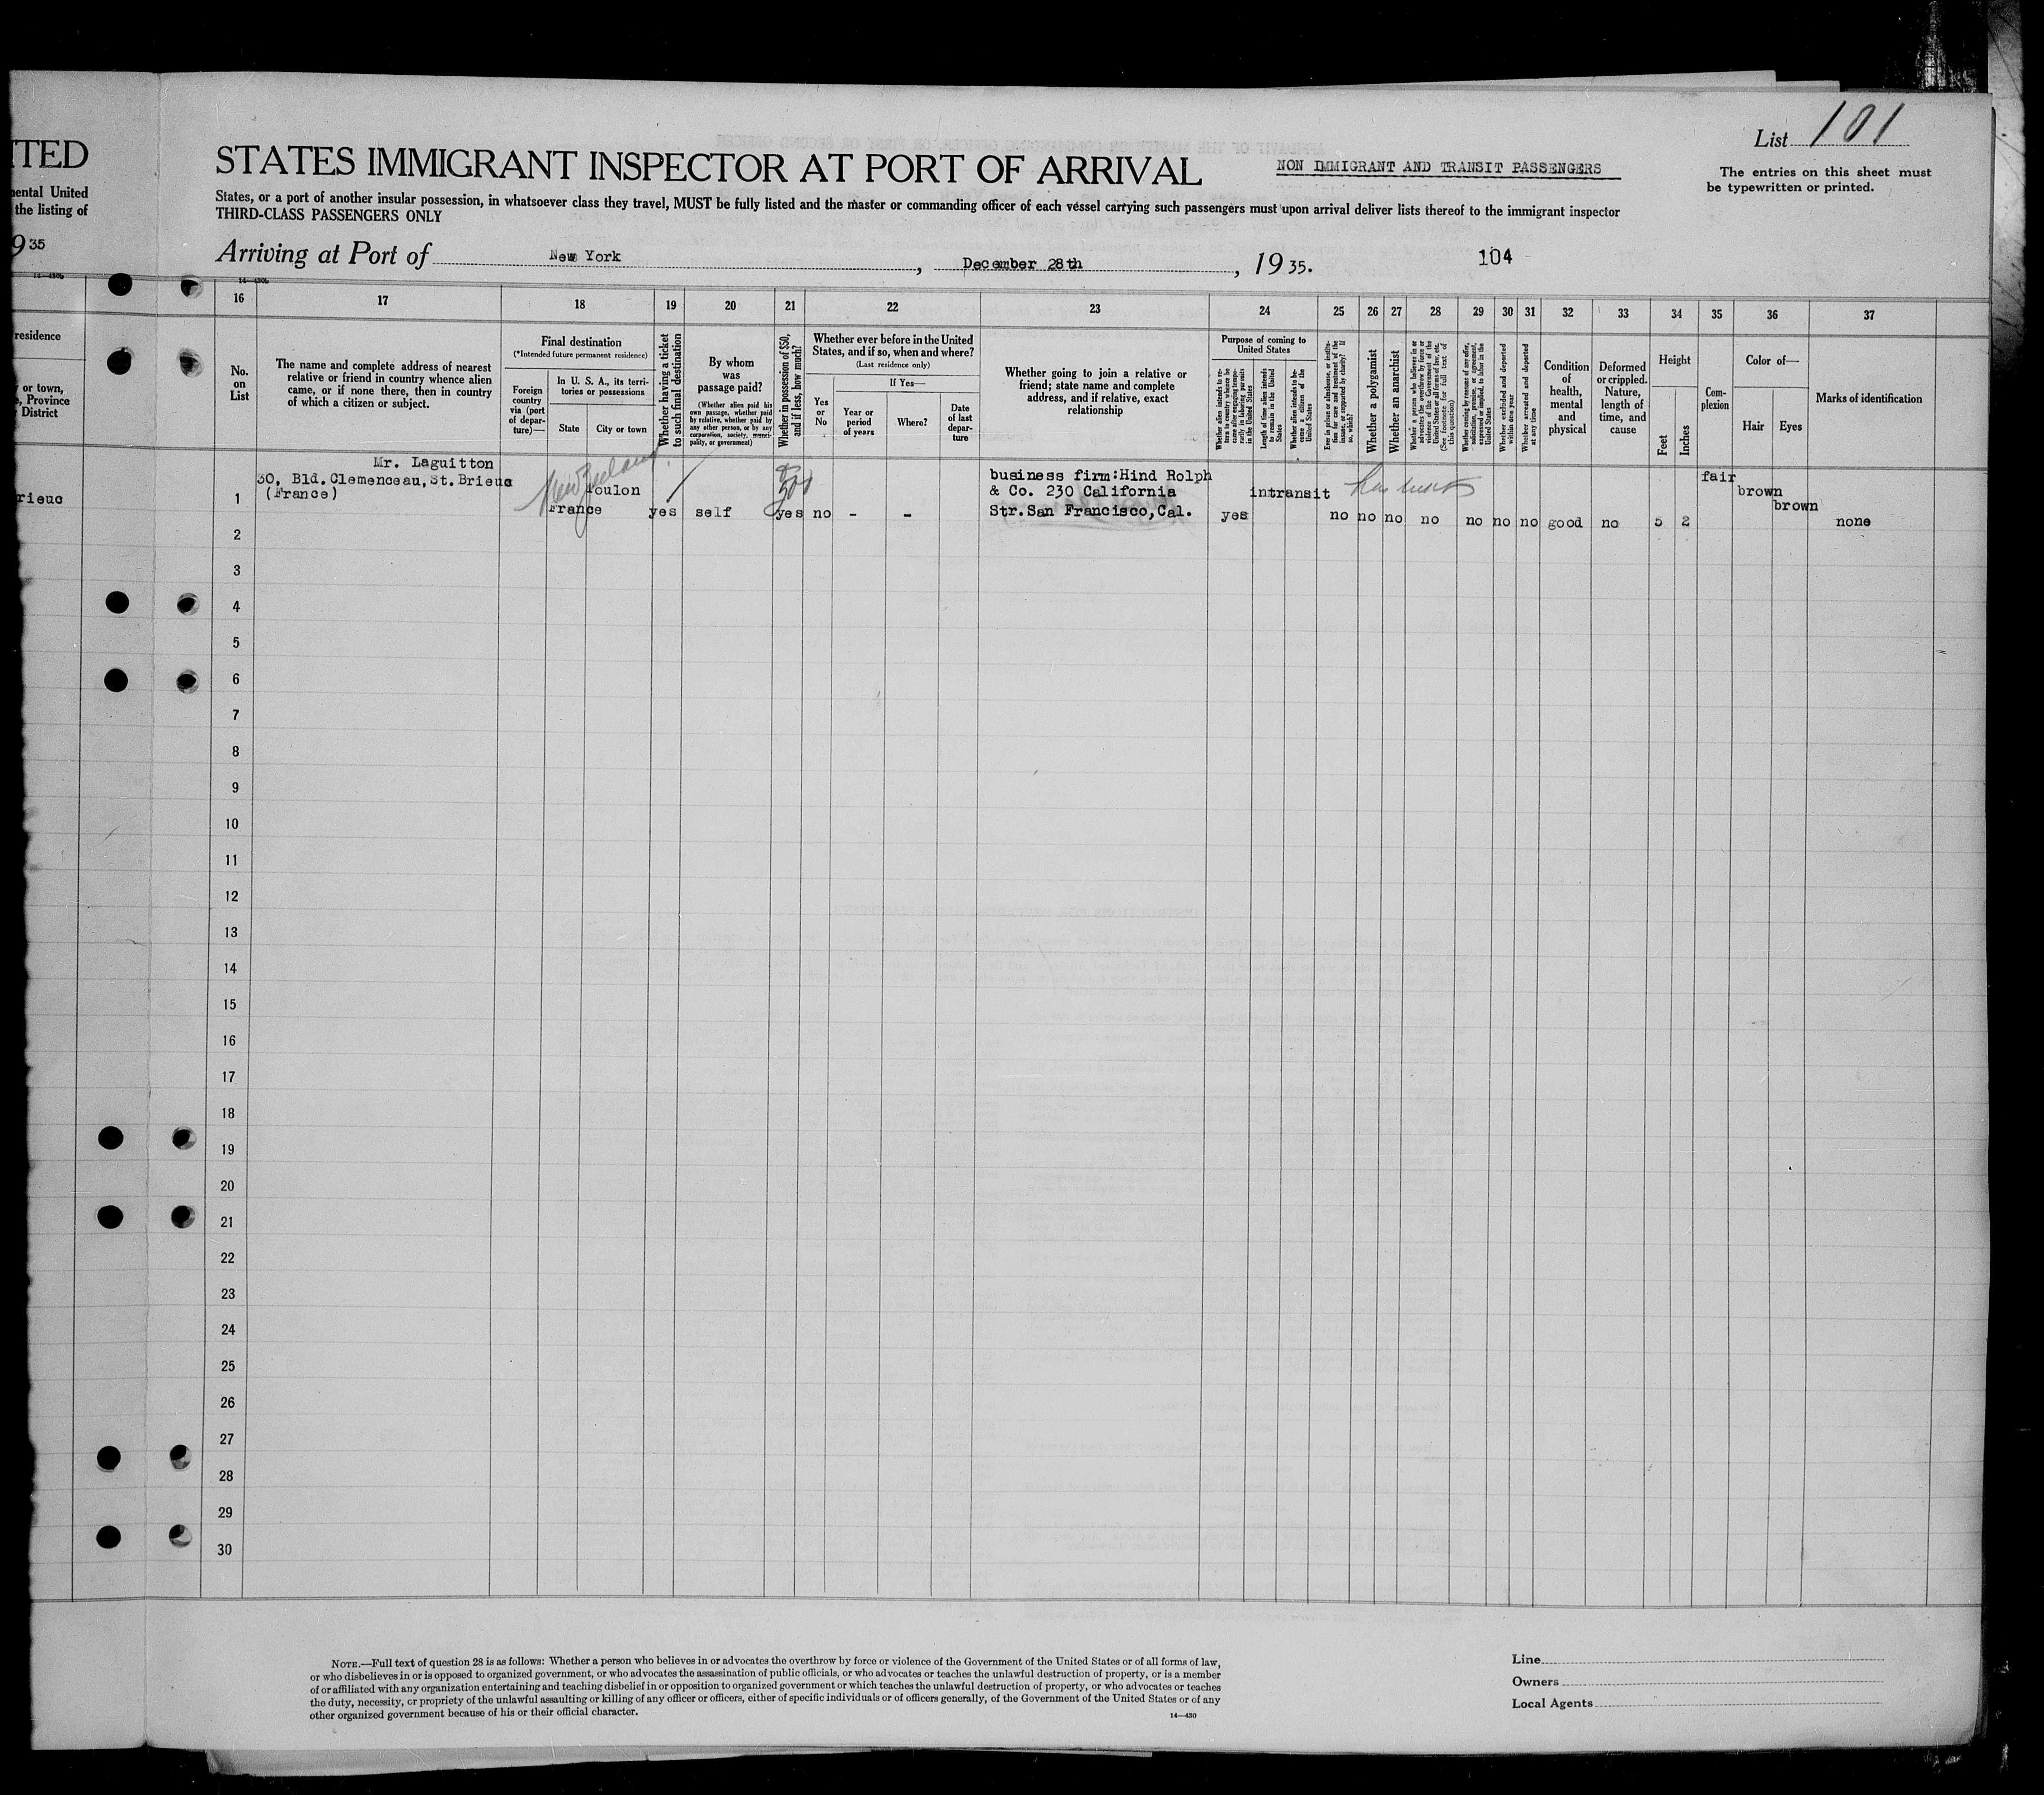 List 101
ITED
STATES IMMIGRANT INSPECTOR AT PORT OF ARRIVAL
NON IMMIGRANT AND TRANSIT PASSENGERS
The entries on this sheet must
be typewritten or printed.
nental United
the listing of
States, or a port of another insular possession, in whatsoever class they travel, MUST be fully listed and the master or commanding officer of each vessel carrying such passengers must upon arrival deliver lists thereof to the immigrant inspector
THIRD-CLASS PASSENGERS ONLY
935
Arriving at Port of New York, December 28th, 1935.
104
14—430b
14—430b
16 17 18 19 20 21 22 23 24 25 26 27 28 29 30 31 32 33 34 35 36 37
residence
or town,
, Province
District
No.
on
List
The name and complete address of nearest
relative or friend in country whence alien
came, or if none there, then in country
of which a citizen or subject.
Final destination
(*Intended future permanent residence)
Foreign
country
via (port
of depar-
ture)—
In U. S. A., its terri-
tories or possessions
State
City or town
Whether having a ticket
to such final destination
By whom
was
passage paid?
(Whether alien paid his
own passage, whether paid
by relative, whether paid by
any other person, or by any
corporation, society, munici-
pality, or government)
Whether in possession of $50,
and if less, how much?
Whether ever before in the United
States, and if so, when and where?
(Last residence only)
Yes
or
No
If Yes—
Year or
period
of years
Where?
Date
of last
depar-
ture
Whether going to join a relative or
friend; state name and complete
address, and if relative, exact
relationship
Purpose of coming to
United States
Whether alien intends to re-
turn to country whence he
came after engaging tempo-
rarily in laboring pursuits
in the United States
Length of time alien intends
to remain in the United
States
Whether alien intends to be-
come a citizen of the
United States
Ever in prison or almshouse, or institu-
tion for care and treatment of the
insane, or supported by charity? If
so, which?
Whether a polygamist
Whether an anarchist
Whether a person who believes in or
advocates the overthrow by force or
violence of the Government of the
United States or all forms of law, etc.
(See footnote for full text of
this question)
Whether coming by reason of any offer,
solicitation, promise, or agreement,
expressed or implied, to labor in the
United States
Whether excluded and deported
within one year
Whether arrested and deported
at any time
Condition
of
health,
mental
and
physical
Deformed
or crippled.
Nature,
length of
time, and
cause
Height
Feet
Inches
Com-
plexion
Color of—
Hair
Eyes
Marks of identification
rieuc
1
Mr. Laguitton
30, Bld. Clemenceau, St. Brieuc
(France)
New Zealand
Toulon
France
yes
self
yes
no
-
-
business firm:Hind Rolph
& Co. 230 California
Str.San Francisco,Cal.
yes
intransit
no no no no no no no good no 5 2
fair
brown
brown
none
2
3
4
5
6
7
8
9
10
11
12
13
14
15
16
17
18
19
20
21
22
23
24
25
26
27
28
29
30
NOTE.—Full text of question 28 is as follows: Whether a person who believes in or advocates the overthrow by force or violence of the Government of the United States or of all forms of law,
or who disbelieves in or is opposed to organized government, or who advocates the assassination of public officials, or who advocates or teaches the unlawful destruction of property, or is a member
of or affiliated with any organization entertaining and teaching disbelief in or opposition to organized government or which teaches the unlawful destruction of property, or who advocates or teaches
the duty, necessity, or propriety of the unlawful assaulting or killing of any officer or officers, either of specific individuals or of officers generally, of the Government of the United States or of any
other organized government because of his or their official character.
14—430
Line
Owners
Local Agents